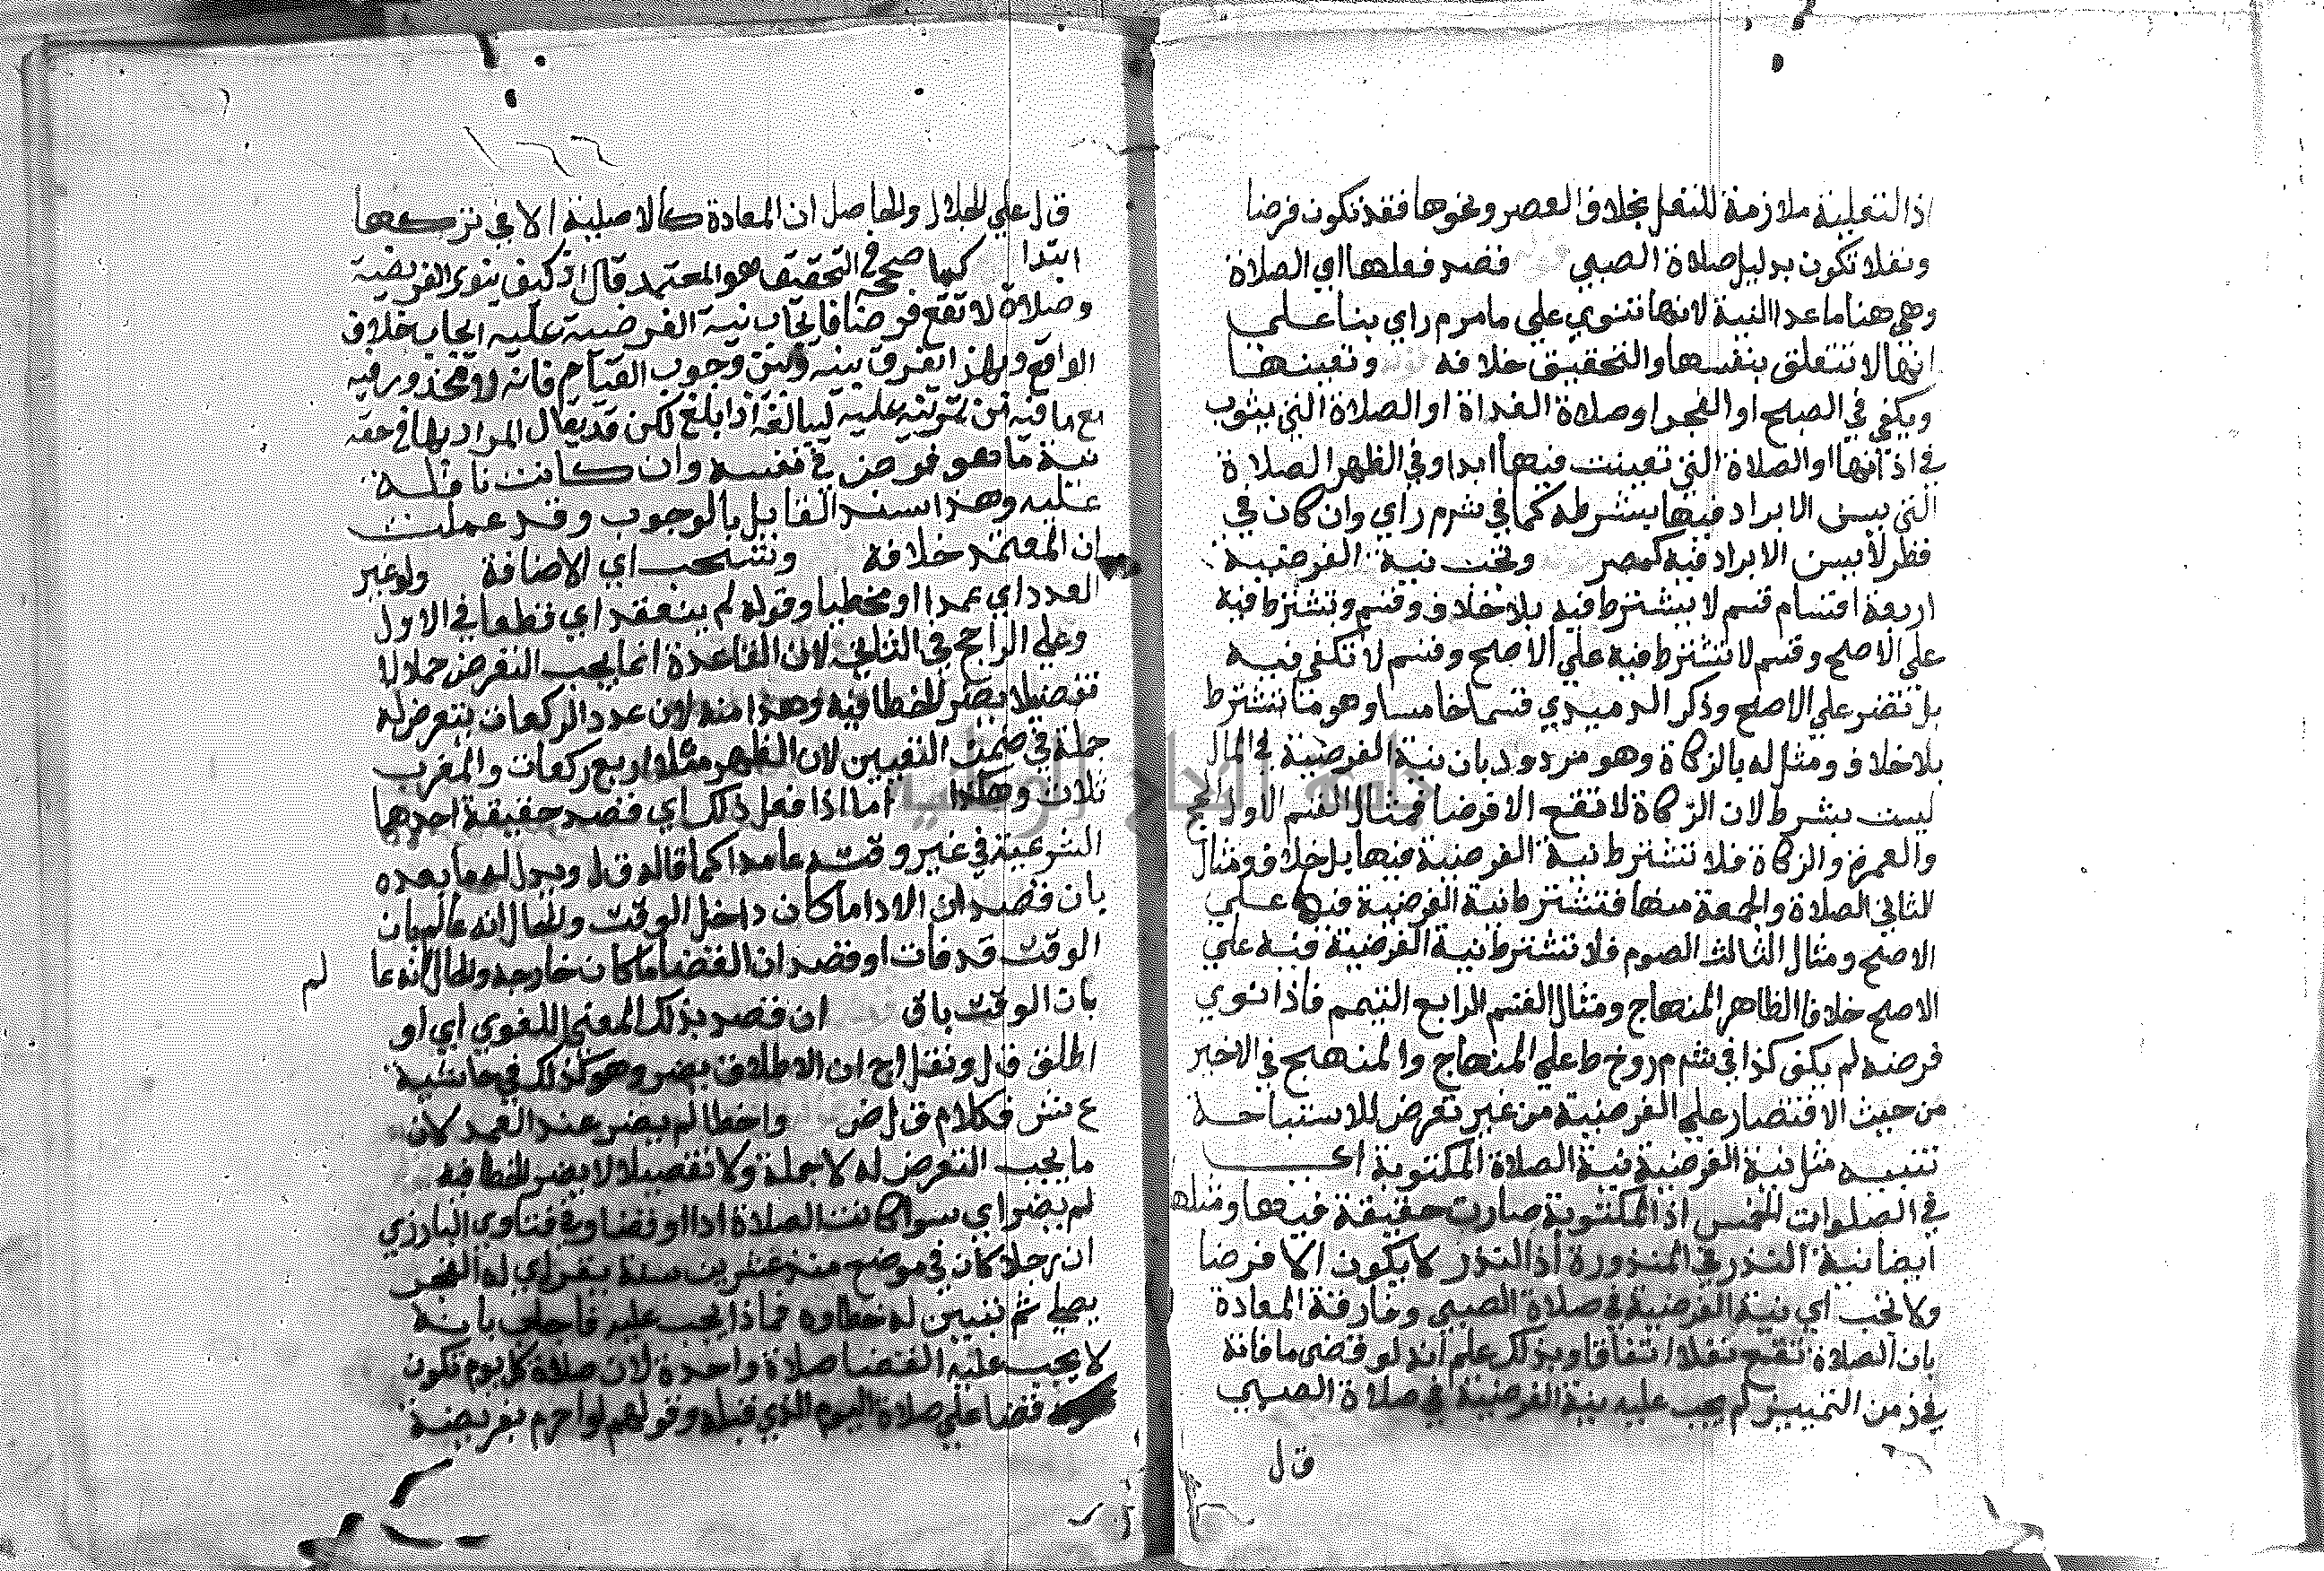 اذ النفلية ملازمة للنفل بخلاف العصر ونحوها فقد تكون فرضا
ونفلا تكون بدليل صلاة الصبي قصد فعلها اي الصلاة
وهي هنا ما عدا النية لانها تنوي علي ما مر م راي بنا علي
انها لا تتعلق بنفسها والتحقيق خلافه وتعينها
ويكفي في الصبح او الفجر او صلاة الغداة او الصلاة التي يثوب
في اذانها او الصلاة التي تعينت فيها ابدا وفي الظهر الصلاة
التي يسن الابراد فيها بشرطه كما في شرم راي وان كان في
قطر لا يسن الابراد فيه كمصر وتحت نية الفرضية
اربعة اقسام قسم لا يشترط فيه بلا خلاف وقسم وتشترط فيه
علي الاصح وقسم لا تشترط فيه علي الاصح وقسم لا تكفي فيه
بل تضر علي الاصح وذكر الدميري قسما خامسا وهو ما تشترط
بلا خلاف ومثل له بالزكاة وهو مردود بان نية الفرضية في المال
ليست بشرط لان الزكاة لا تقع الا فرضا فمثال القسم الاول الحج
والعمرة والزكاة فلا تشترط نية الفرضية فيها بلا خلاف ومثال
الثاني الصلاة والجمعة منها فتشترط نية الفرضية فيها علي
الاصح ومثال الثالث الصوم فلا تشترط نية الفرضية فيه علي
الاصح خلافا لظاهر المنهاج ومثال القسم الرابع التيمم فاذا نوي
فرضه لم يكف كذا في شرم روخ ط علي المنهاج والمنهج في الاخير
من حيث الاقتصار علي الفرضية من غير تعرض للاستباحة
تنبيه مثل نية الفرضية نية الصلاة المكتوبة اي
في الصلوات الخمس اذ المكتوبة صارت حقيقة فيها ومثلها
ايضا نية النذر في المنذورة اذ النذر لا يكون الا فرضا
ولا تجب اي نية الفرضية في صلاة الصبي وفارقة المعادة
بان الصلاة تقع نفلا اتفاقا وبذلك علم انه لو قضى ما فاته
في زمن التمييز لم يجب عليه نية الفرضية في صلاة الصبي
ق ل
ق ل علي الجلال والحاصل ان المعادة كالاصلية الا في تركها
ابتدا كما صح في التحقيق هو المعتمد قال اذ كيف ينوي الفرضية
وصلاة لا تقع فرضا فايجاب نية الفرضية عليه ايجاب خلاف
الواقع وبهذا يفرق بينه وبين وجوب القيام فانه لا محذور فيه
مع ما فيه من تمرينه عليه ليبالغه اذا بلغ لكن قد يقال المراد بها في حقه
نية ما هو فرض في نفسه وان كانت نافلة
عليه وهذا سند القايل بالوجوب وقد عملت
ان المعتمد خلافه وتستحب اي الاضافة ولو غير
العدد اي عمدا او مخطيا وقوله لم ينعقد اي قطعا في الاول
وعلي الراجح في الثاني لان القاعدة انما يجب التعرض جملة لا
تفصيلا يضر الخطا فيه وهذا منه لان عدد الركعات يتعرض له
جملة في ضمن التعيين لان الظهر مثلا اربع ركعات والمغرب
ثلاث وهكذا اما اذا فعل ذلك اي قصد حقيقة احدهما
الشرعية في غير وقته عامدا كما قاله ق ل ويدل له ما بعده
بان قصد ان الادا ما كان داخل الوقت والحال انه عالم بان
الوقت قد فات او قصد ان القضا ما كان خارجه والحال انه عا
لم
بان الوقت باق ان قصد بذلك المعني اللغوي اي او
اطلق ق ل ونقل اج ان الاطلاق يضر وهو كذلك في حاشية
ع ش فكلام ق ل ض واخطا لم يضر عند العمد لان
ما يجب التعرض له لا جملة ولا تفصيلا لا يضر الخطا فيه
لم يضر اي سوا كانت الصلاة ادا او قضا وفي فتاوي البارزي
ان رجلا كان في موضع منذ عشرين سنة يتراي له الفجر
يصلي ثم تبين له خطاوه فماذا يجب عليه فاجاب بانه
لا يجب عليه القضا صلاة واحدة لان صلاة كل يوم تكون
قضا علي صلاة اليوم الذي قبله وقولهم لو احرم بفريضة